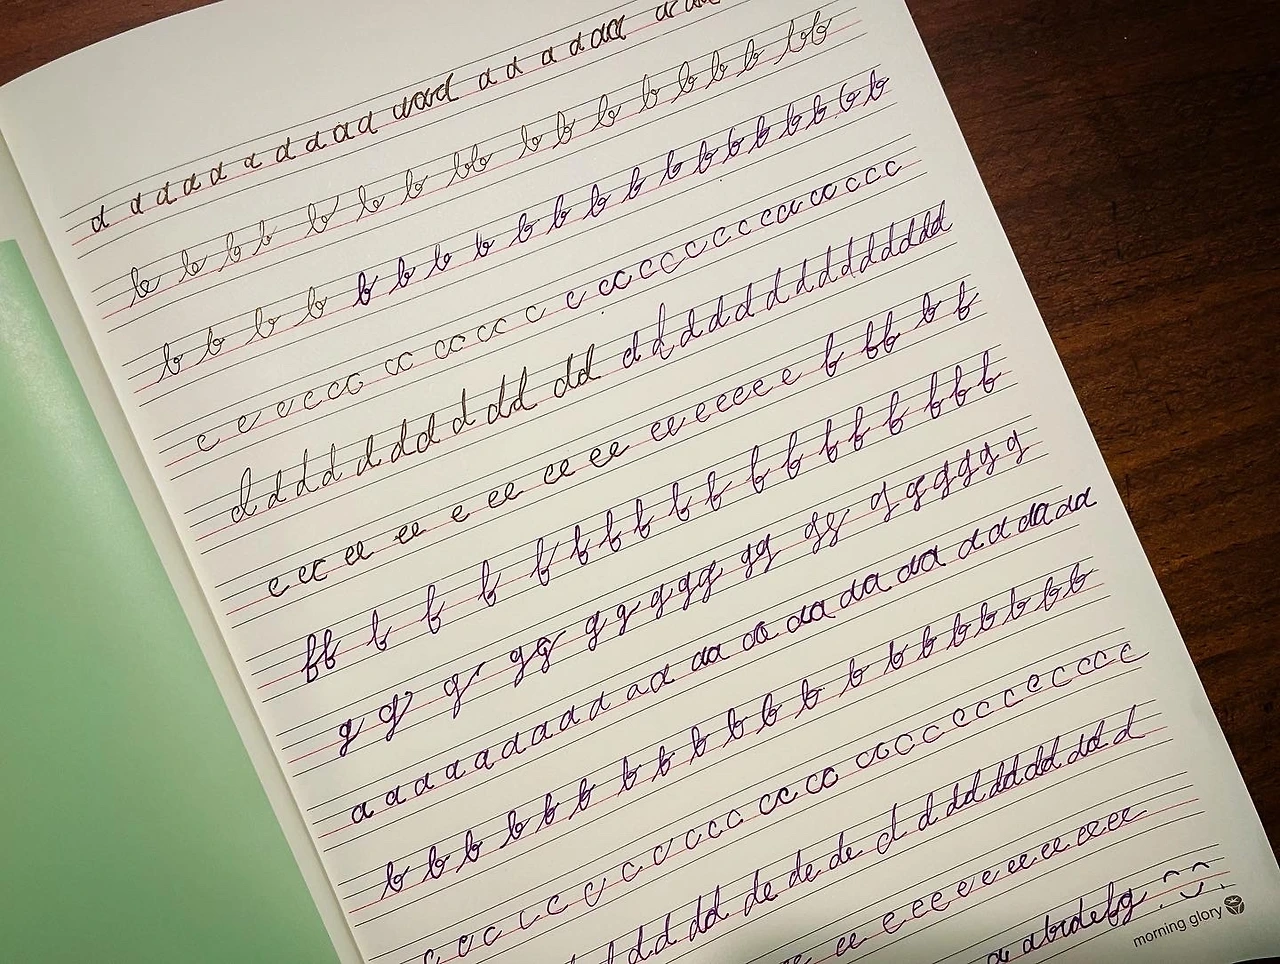 a a a a a a a a a a a aaa a a a a aa a aa
b b b b b b b bb b b b b b b b bb
b b b b b b b b b b b b b b b b b b b b b
c c c c c cc cc cc c c cc c c c c c c c cc cc c c c
d d d d d d d d d dd dd d d d d d d d d d d d d d
e e c ee ee e ee ee ee ee e e e e e f ff f f
ff f f f f f f f f f f f f f f f f f
g g g gg g g g gg gg gg g g g g g g
a a a a a a a a a a aa aa aa aa aa a a aa aa
b b b b b b b b b b b b b b b b b b b
c c c c c c c c c c c cc cc c c c c c c c c c c c
d d d dd de de de d d dd dd dd dd d
ee e e e e e ee ee ee ee
a abcdefg
morning glory